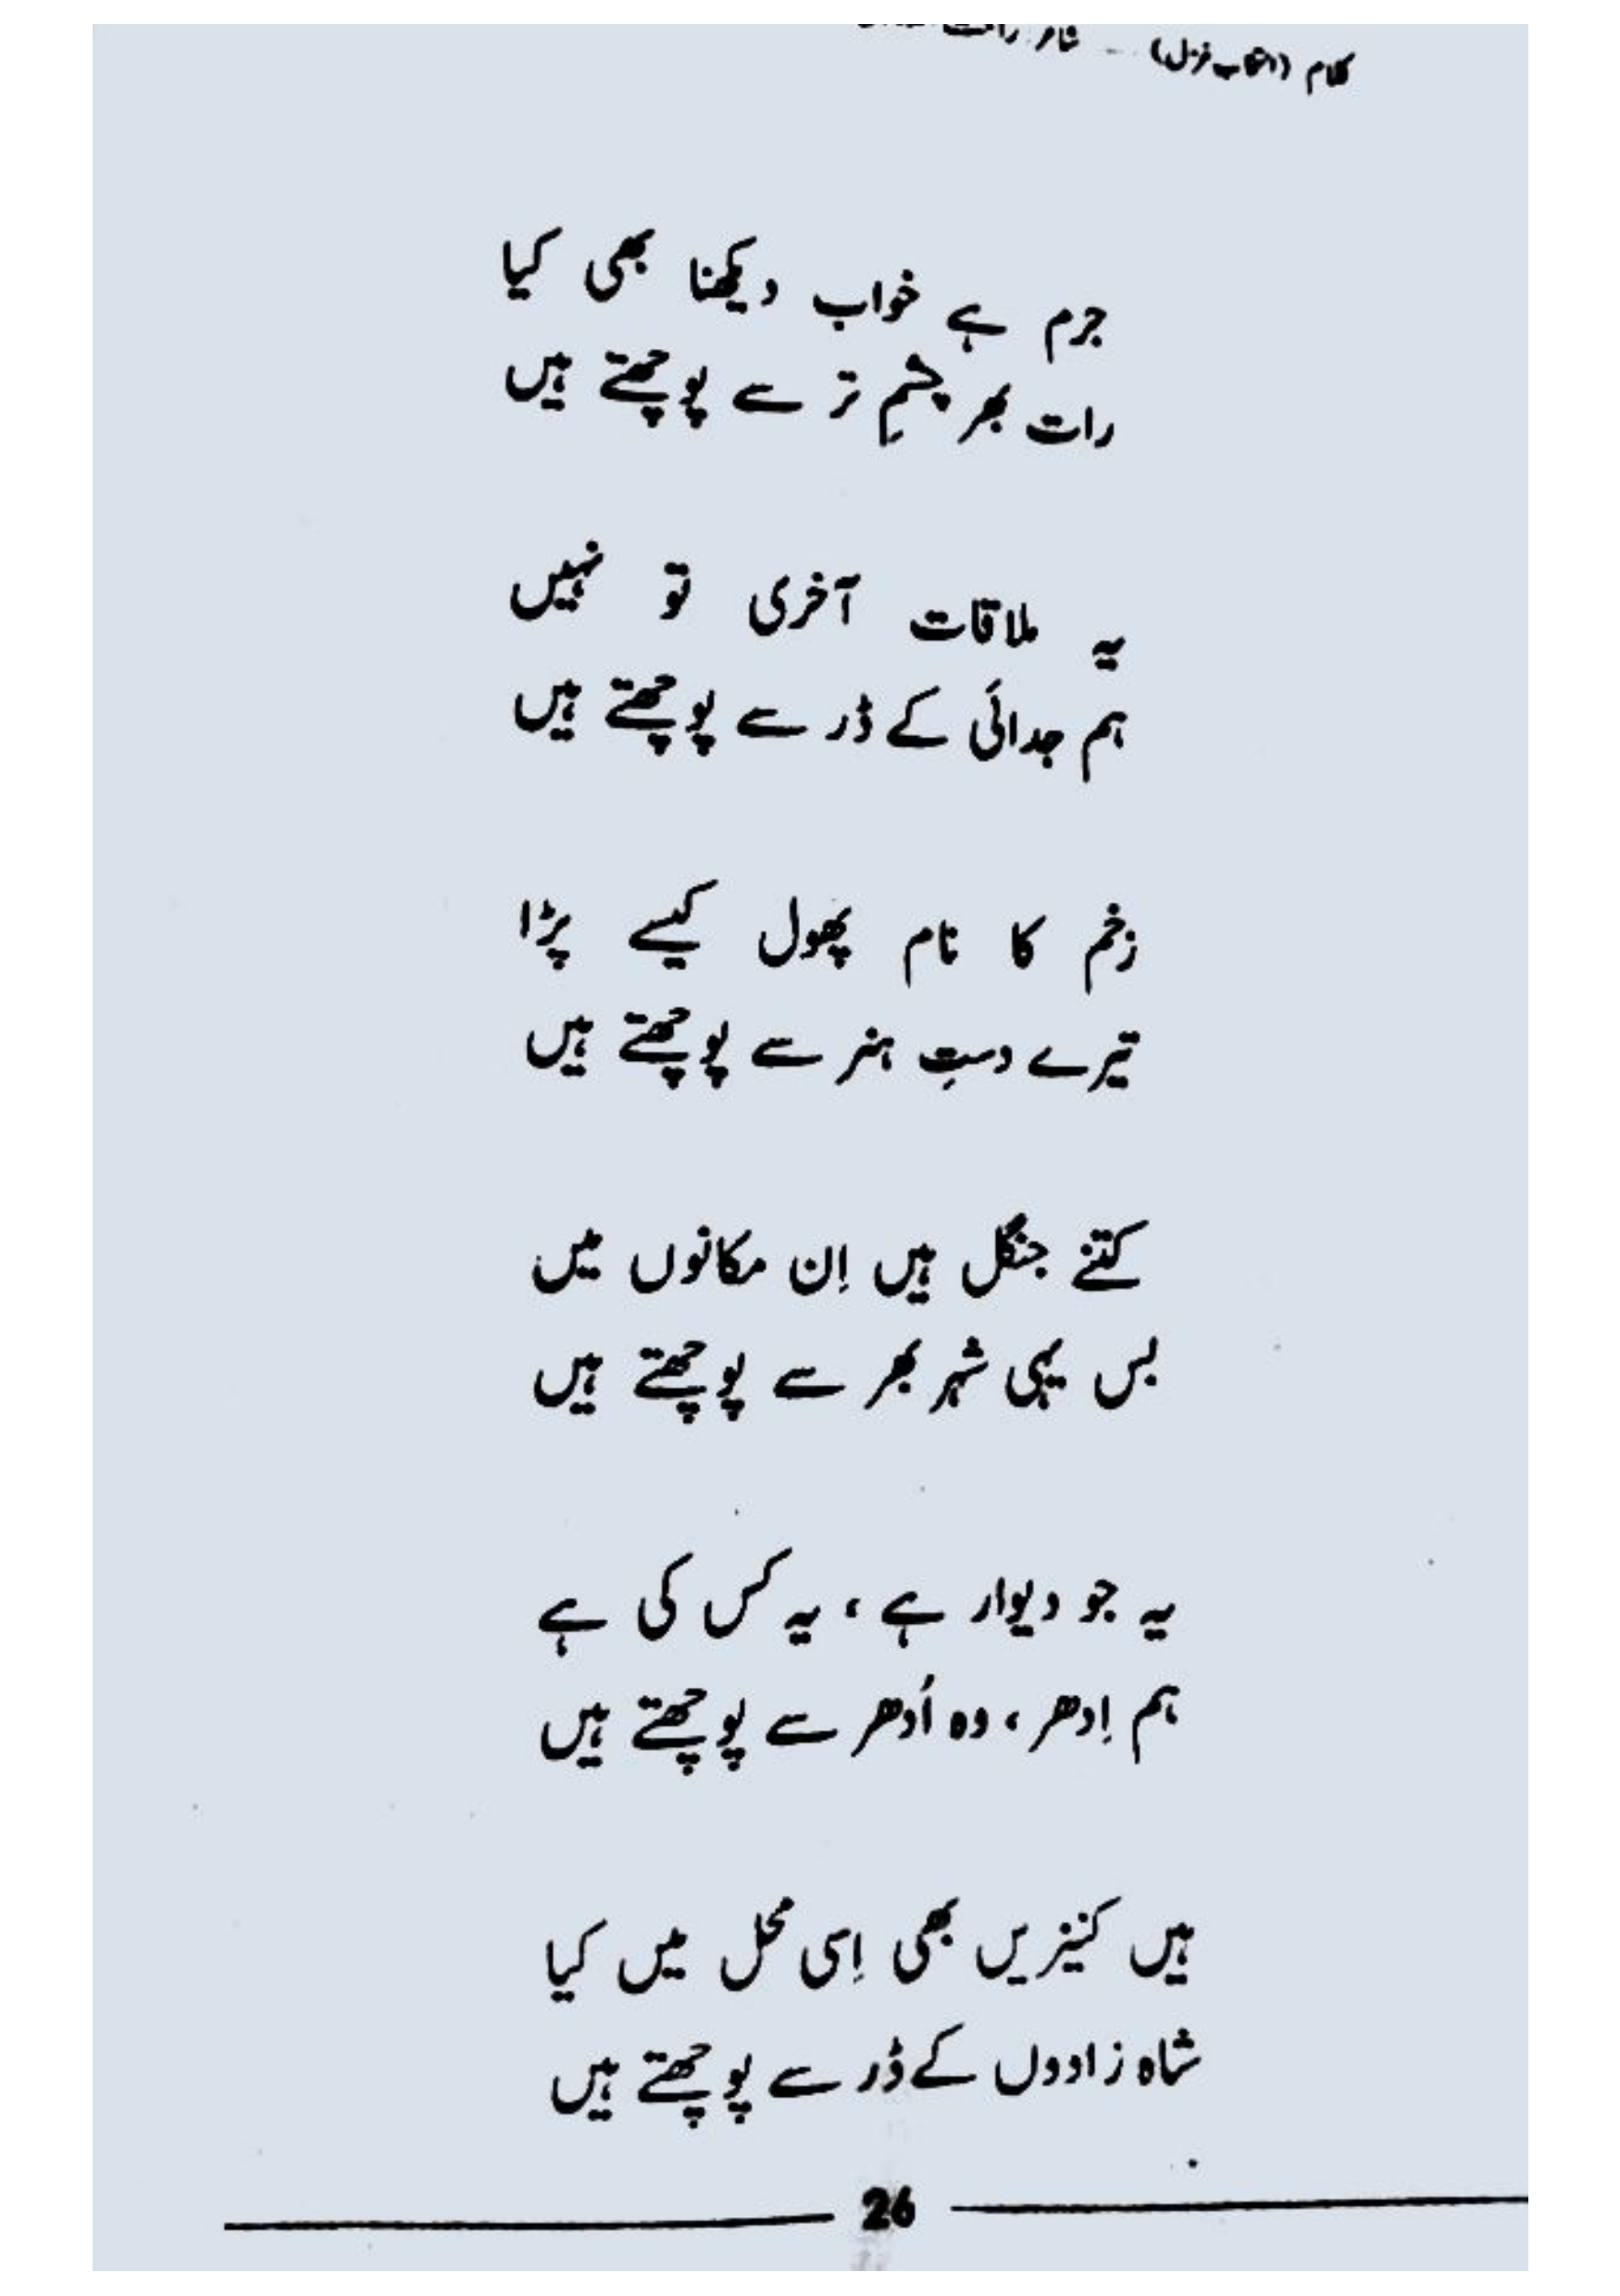 کلام (انتخاب غزل) - شاعر
جرم ہے خواب دیکھنا بھی کیا
رات بھر چشمِ تر سے پوچھتے ہیں
یہ ملاقات آخری تو نہیں
ہم جدائی کے ڈر سے پوچھتے ہیں
زخم کا نام پھول کیسے پڑا
تیرے دستِ ہنر سے پوچھتے ہیں
کتنے جنگل ہیں اِن مکانوں میں
بس یہی شہر بھر سے پوچھتے ہیں
یہ جو دیوار ہے، یہ کس کی ہے
ہم اِدھر، وہ اُدھر سے پوچھتے ہیں
ہیں کنیزیں بھی اِسی محل میں کیا
شاہ زادوں کے ڈر سے پوچھتے ہیں
26